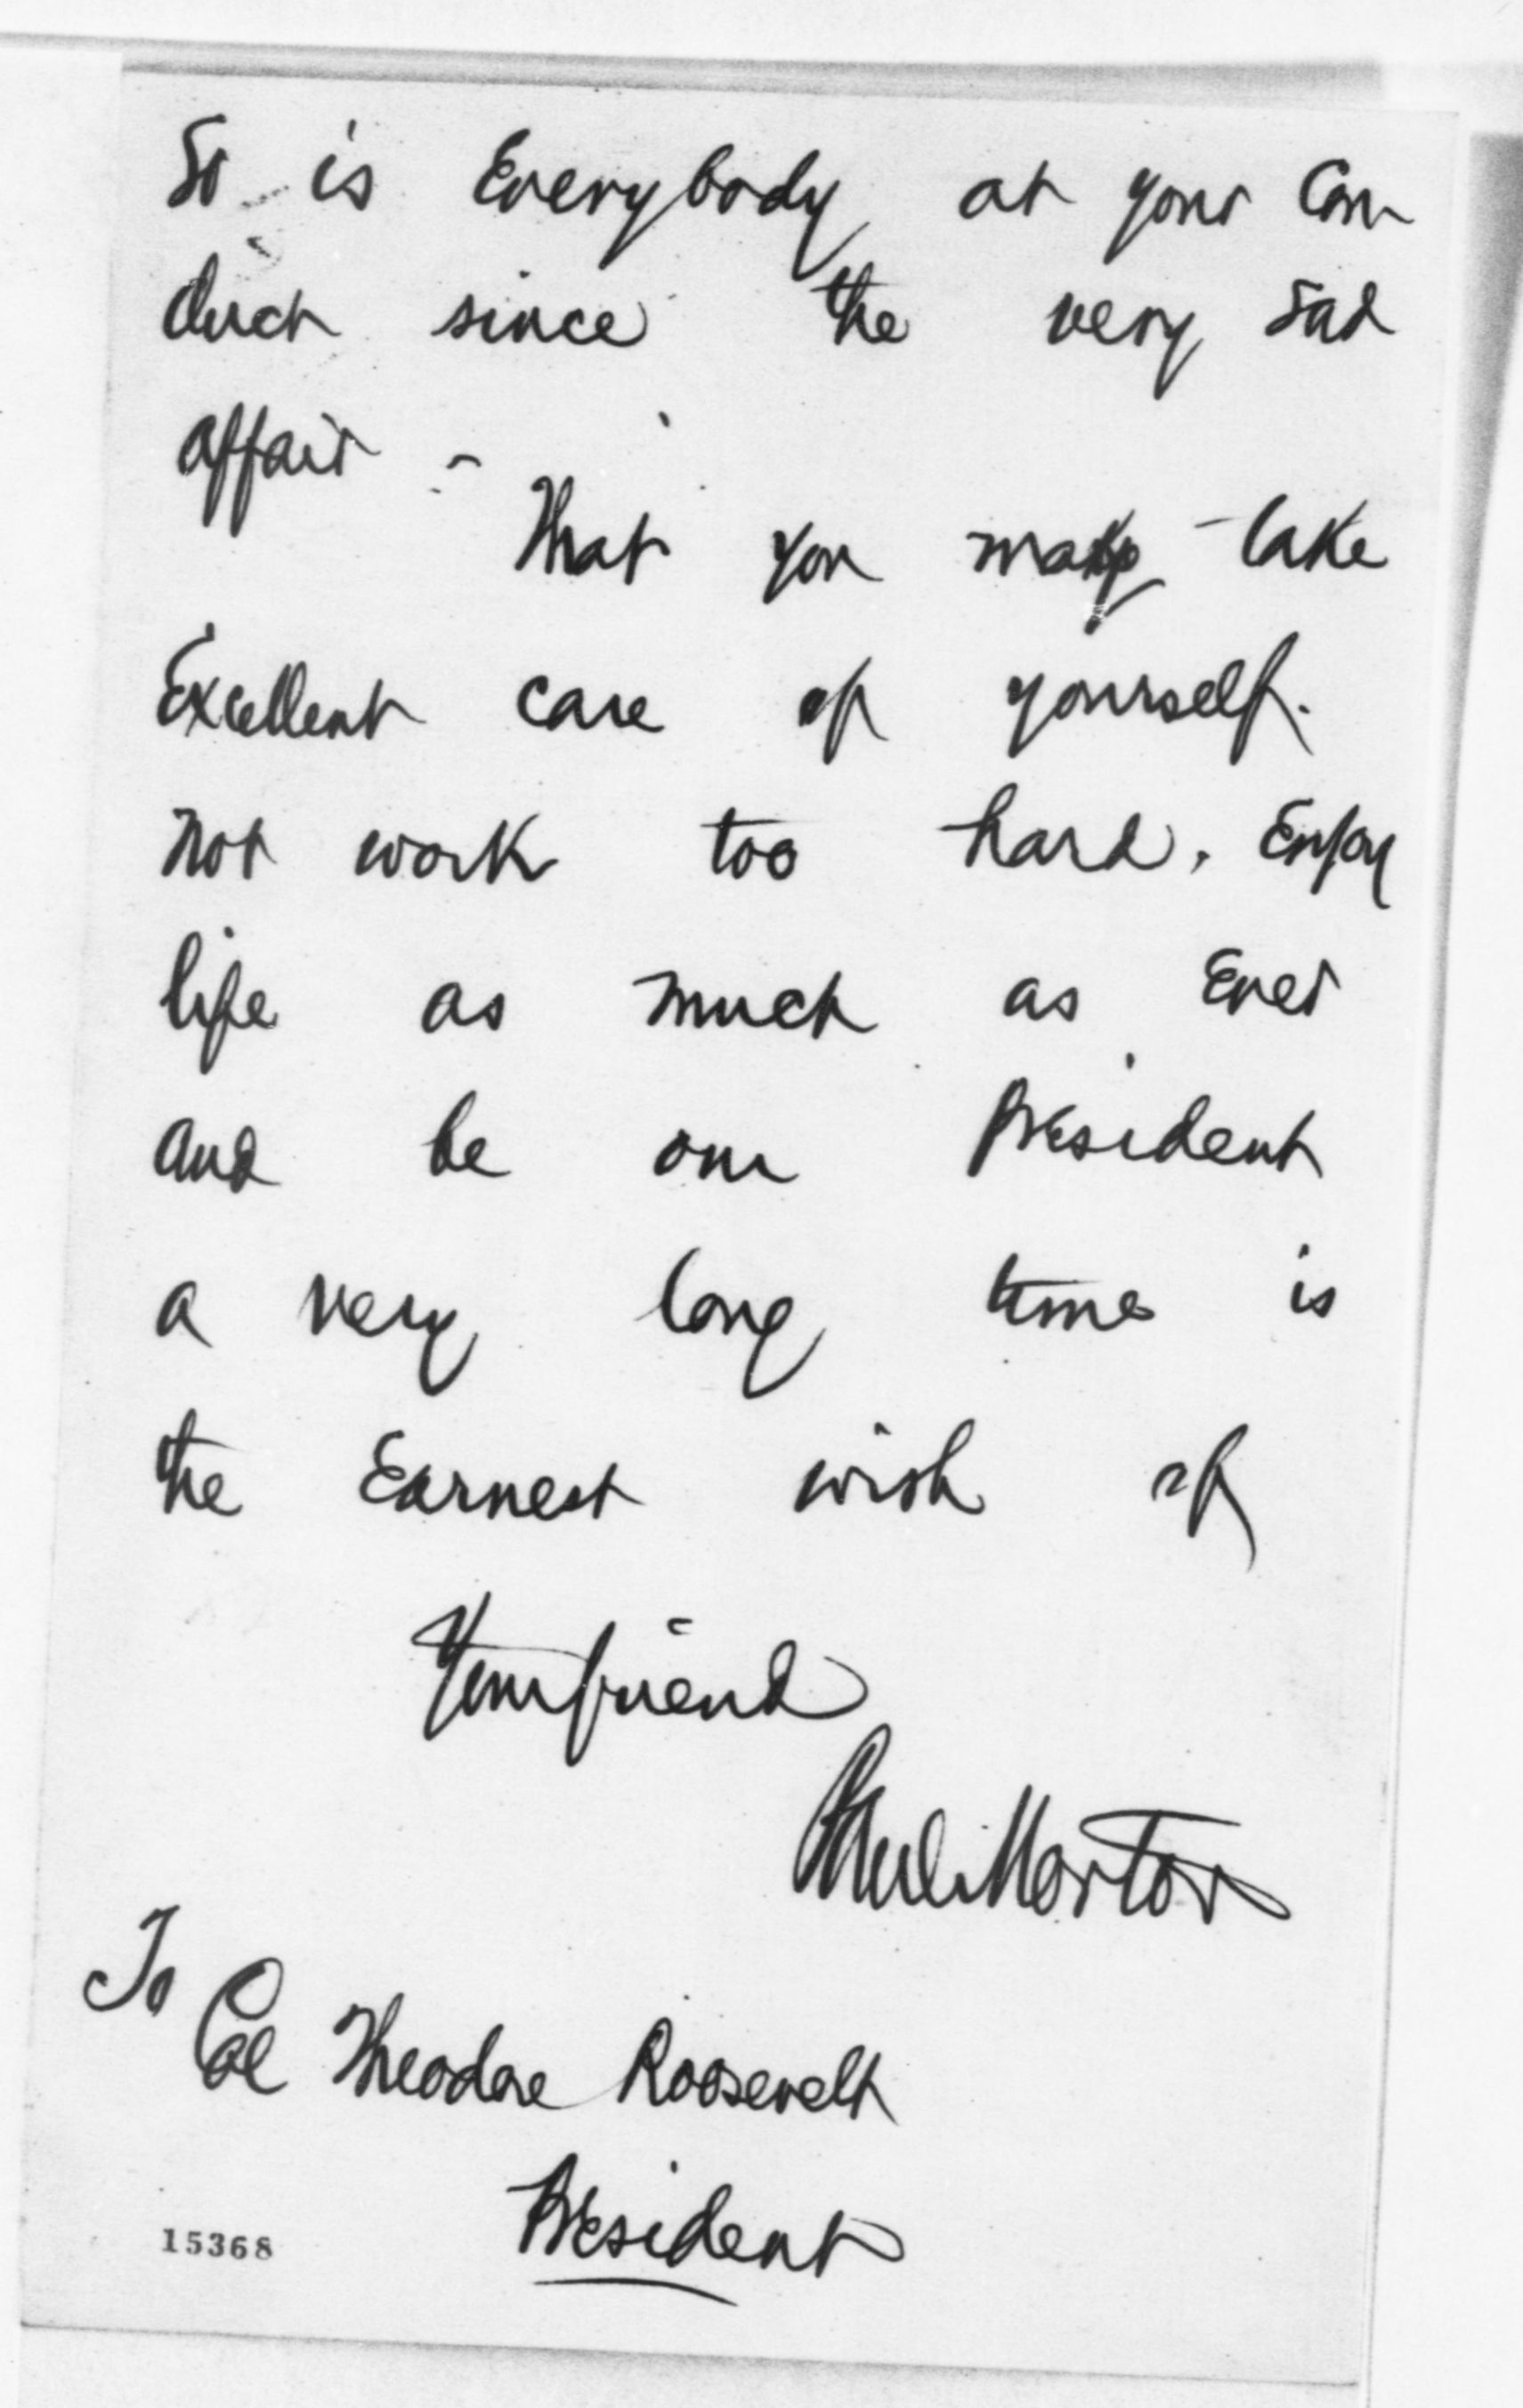 So is Everybody at your Con
duct since the very sad
affair -
That you may take
Excellent care of yourself.
not work too hard. Enjoy
life as much as Ever
and be our President
a very long time is
the Earnest wish of
Your friend
Paul Morton
To
Col Theodore Roosevelt
President
15368